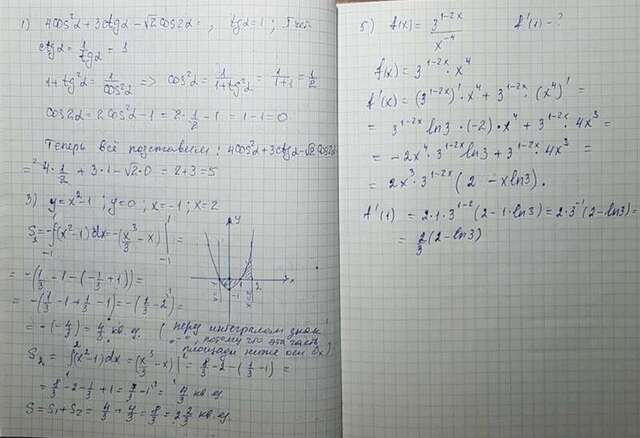 1) 4cos²α+3ctgα-√2cos2α= , tgα=1; I чет
ctgα=1/tgα=1
1+tg²α=1/cos²α => cos²α=1/(1+tg²α)=1/(1+1)=1/2
cos2α=2cos²α-1=2·1/2-1=1-1=0
Теперь всё подставим: 4cos²α+3ctgα-√2cos2α
=4·1/2+3·1-√2·0=2+3=5
3) y=x²-1; y=0; x=-1; x=2
S₁=-∫₋₁¹(x²-1)dx=-(x³/3-x)|₋₁¹=
=-(1/3-1-(-1/3+1))=
=-(1/3-1+1/3-1)=-(2/3-2)=
=-(-4/3)=4/3 кв.ед. (перед интегралом знак
"-", потому что эта часть
площади ниже оси Ox)
S₂=∫₁²(x²-1)dx=(x³/3-x)|₁²=8/3-2-(1/3-1)=
=8/3-2-1/3+1=7/3-1=4/3 кв.ед.
S=S₁+S₂=4/3+4/3=8/3=2 2/3 кв.ед.
y
x
-1
1
2
5) f(x)=3^(1-2x)/x^(-4) f'(1)-?
f(x)=3^(1-2x)·x⁴
f'(x)=(3^(1-2x))'·x⁴+3^(1-2x)·(x⁴)'=
=3^(1-2x)ln3·(-2)·x⁴+3^(1-2x)·4x³=
=-2x⁴·3^(1-2x)ln3+3^(1-2x)·4x³=
=2x³·3^(1-2x)(2-xln3).
f'(1)=2·1·3^(1-2)(2-1·ln3)=2·3^(-1)(2-ln3)=
=2/3(2-ln3)